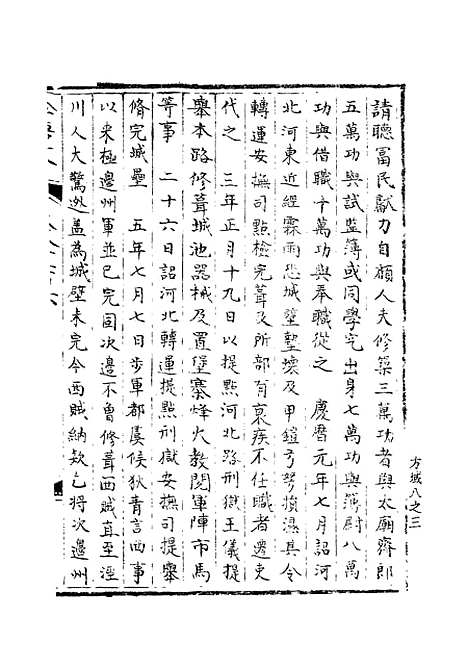 請聽富民獻力自顧人夫修築三萬功者與太廟齋郎
五萬功與試監簿或同學究出身七萬功與簿尉八萬
功與借職十萬功與奉職從之　慶曆元年七月詔河
北河東近經霖雨恐城壁墊壞及甲鎧弓弩損濕其令
轉運安撫司點檢完葺及所部有衰疾不任職者選吏
代之　三年正月十九日以提點河北路刑獄王儀提
舉本路修葺城池器械及置堡寨烽火教閱軍陣市馬
等事　二十六日詔河北轉運提點刑獄安撫司提舉
脩完城壘　五年七月七日步軍都虞候狄青言西事
以來極邊州軍並已完固次邊不曾修葺西賊直至涇
川人大驚迯蓋為城壁未完今西賊納欵乞將次邊州
方域八之三